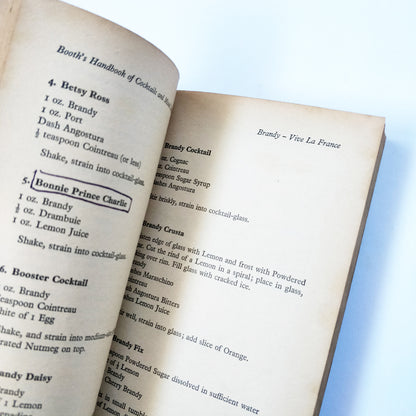 Booth's Handbook of Cocktails and
4. Betsy Ross
1 oz. Brandy
1 oz. Port
Dash Angostura
½ teaspoon Cointreau (or less)
Shake, strain into cocktail-glass.
5. Bonnie Prince Charlie
1 oz. Brandy
½ oz. Drambuie
1 oz. Lemon Juice
Shake, strain into cocktail-glass.
6. Booster Cocktail
Brandy
teaspoon Cointreau
White of 1 Egg
Shake, and strain into
grated Nutmeg on top.
Brandy Daisy
Brandy
Lemon Juice
Brandy – Vive La France
Brandy Cocktail
oz. Cognac
Cointreau
teaspoon Sugar Syrup
Angostura
briskly, strain into cocktail-glass.
Brandy Crusta
edge of glass with Lemon and frost with Powdered
Cut the rind of a Lemon in a spiral; place in glass,
over rim. Fill glass with cracked ice.
Brandy
Maraschino
Cointreau
Angostura Bitters
Lemon Juice
well, strain into glass; add slice of Orange.
Brandy Fix
Powdered Sugar dissolved in sufficient water
of ½ Lemon
Brandy
Cherry Brandy
in small